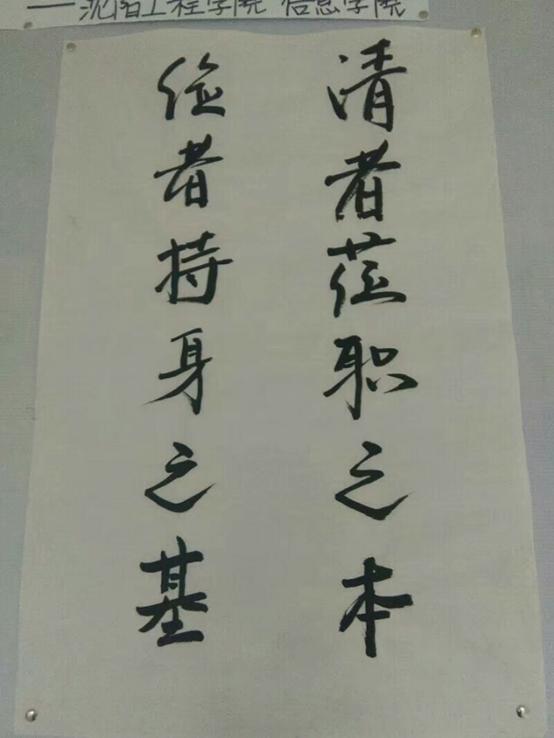 ——沈阳工程学院 信息学院
清者莅职之本
俭者持身之基